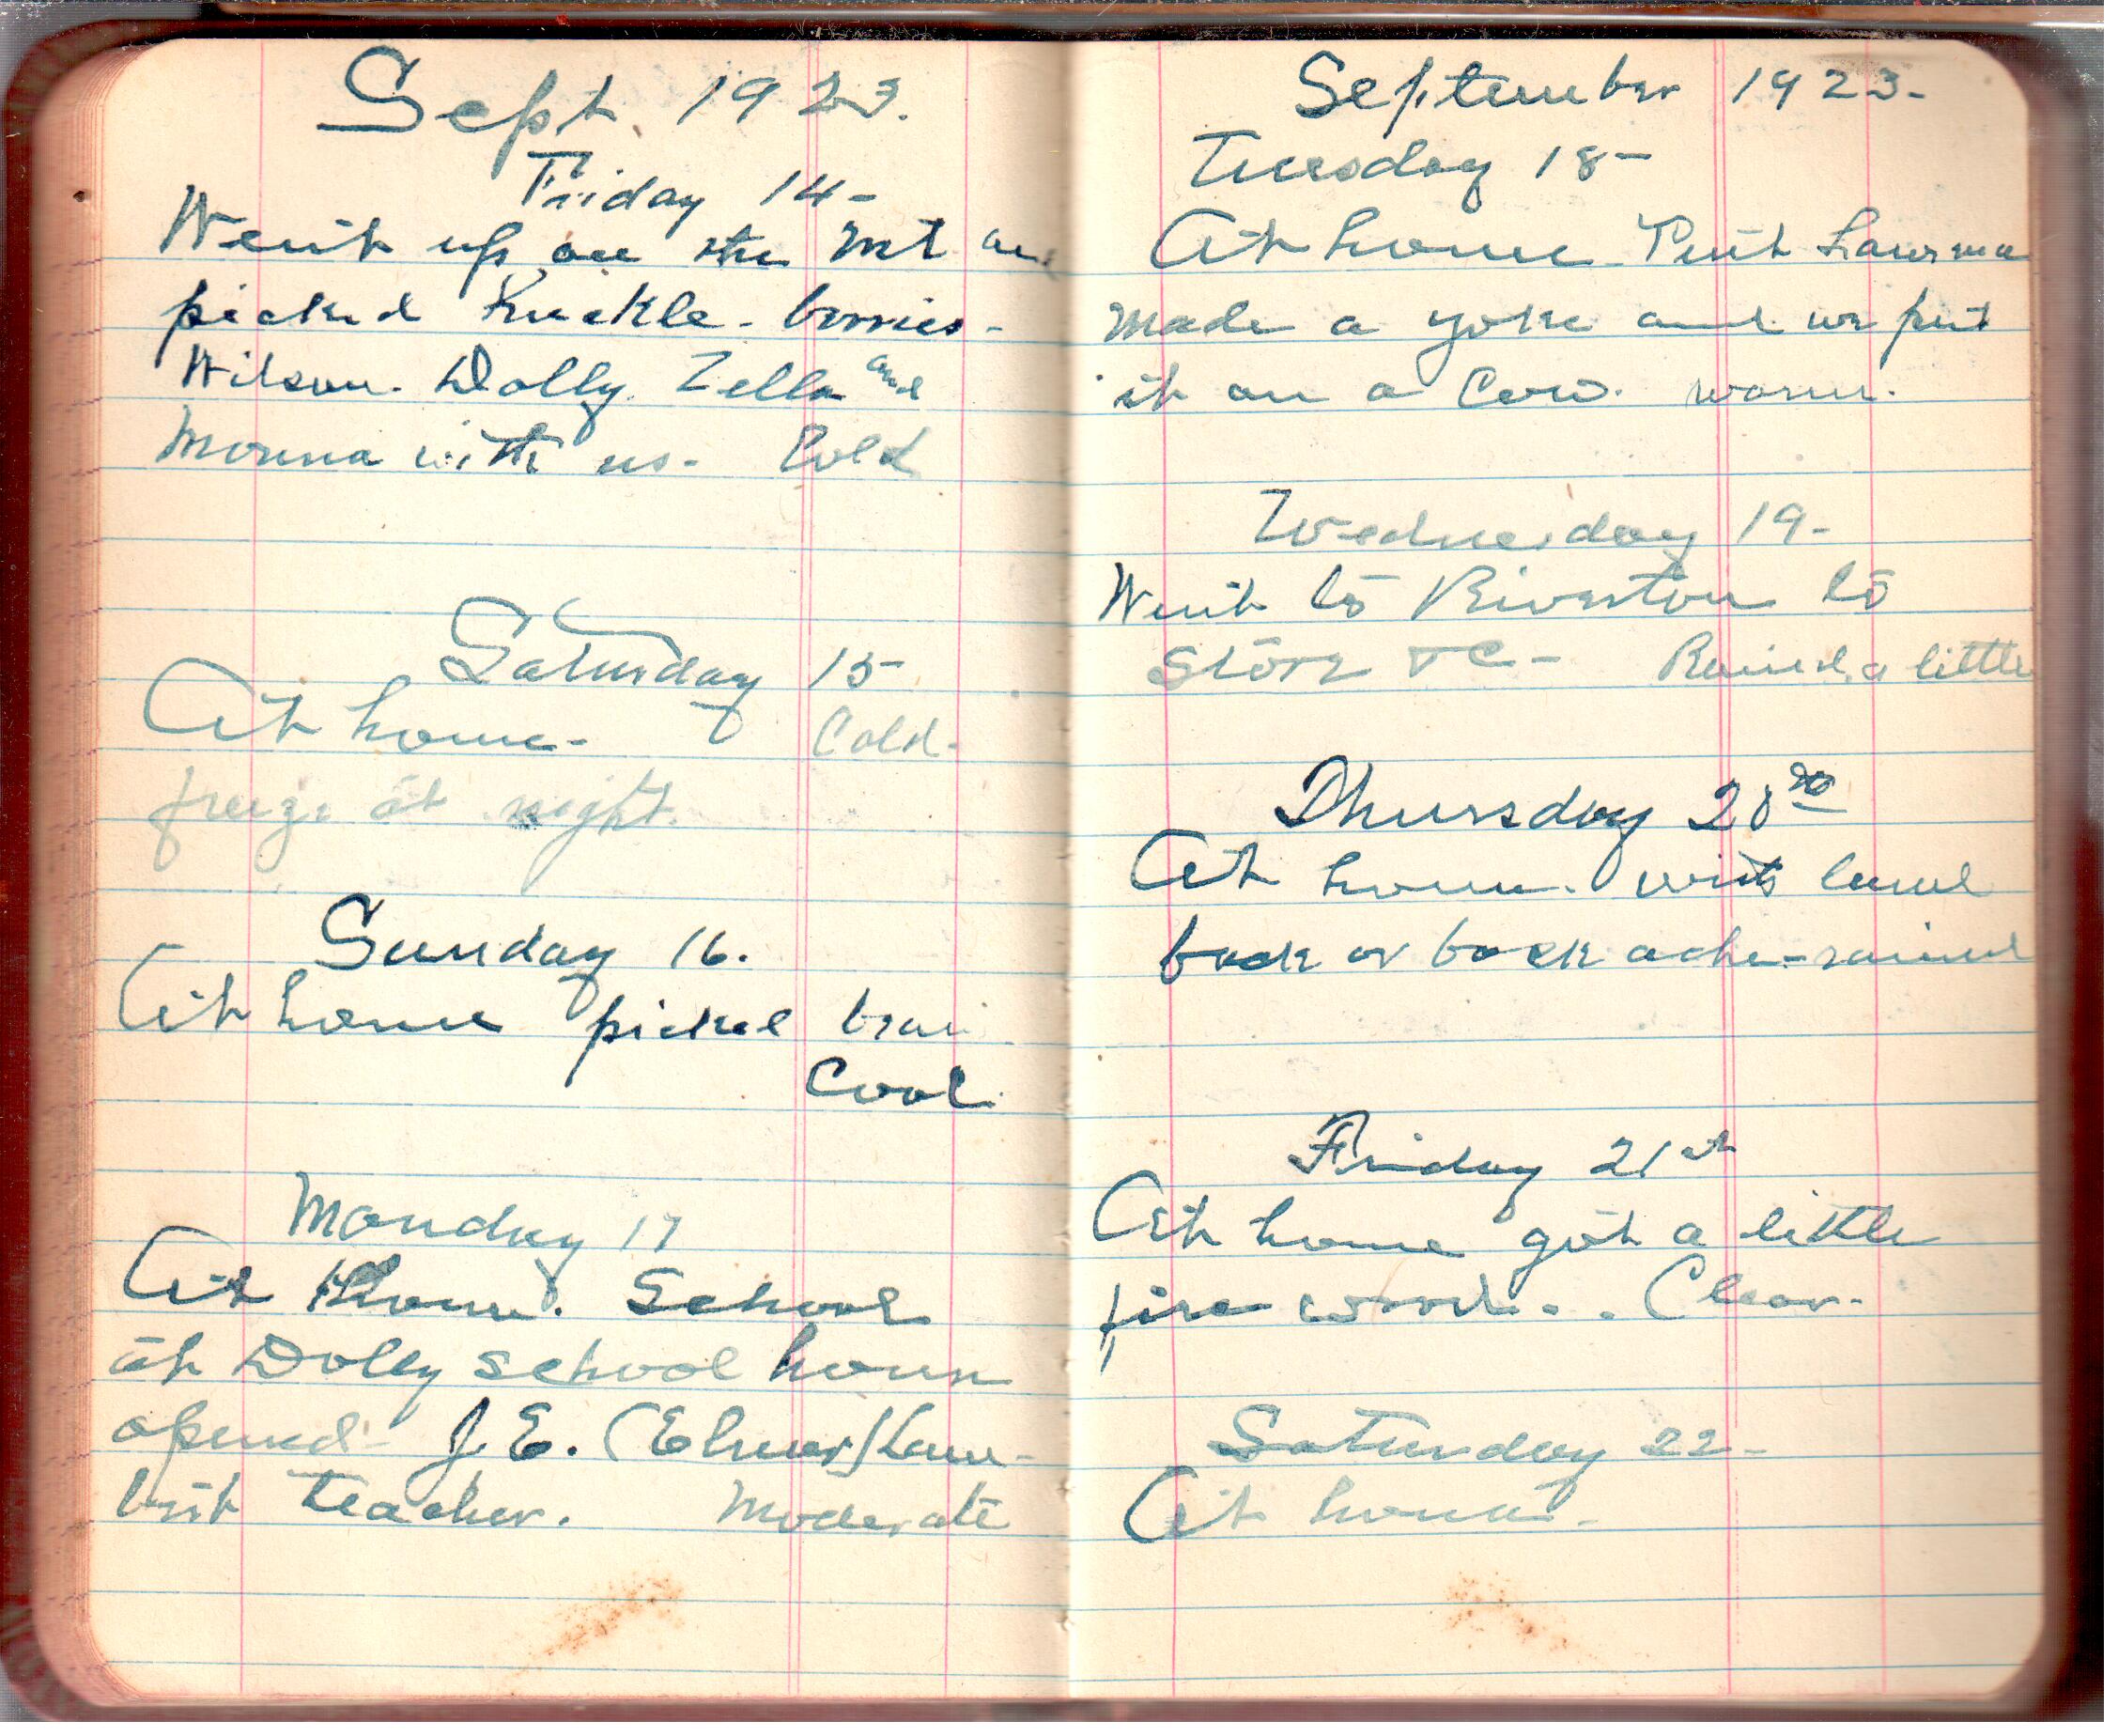 Sept. 1923.
Friday 14-
Went up on the Mt and
picked huckle-berries-
Wilson. Dolly. Zella and
Monna with us- Cold
Saturday 15-
At home- Cold-
freeze at night.
Sunday 16.
At home picked
Cool
Monday 17
At Home. School
at Dolly school house
opened- J.E. (Elmer) Lam-
bert teacher. Moderate
September 1923-
Tuesday 18-
At home-
made a yoke and we put
it on a Cow. warm.
Wednesday 19-
Went to Riverton to
Store &C- Rained a little
Thursday 20
At home. with lame
back or back ache-rained
Friday 21st
At home got a little
fire wood-. Clear-
Saturday 22-
At home-